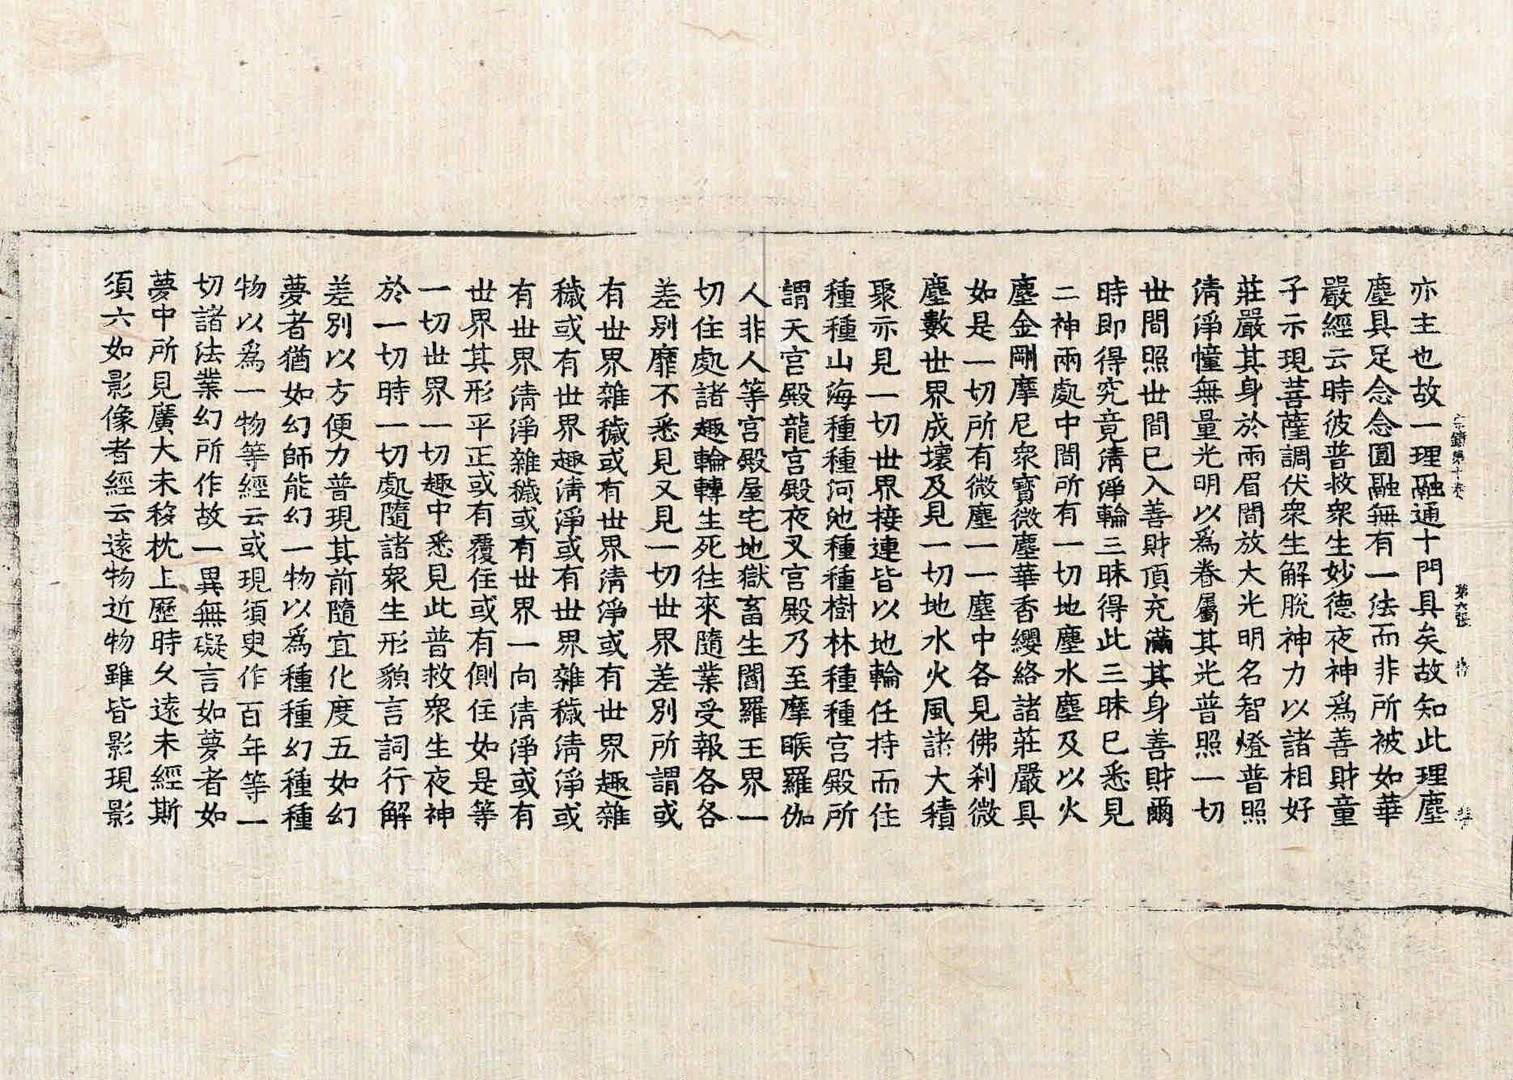 宗鏡第十卷 第六張
亦主也故一理融通十門具矣故知此理塵
塵具足念念圓融無有一法而非所被如華
嚴經云時彼普救衆生妙德夜神爲善財童
子示現菩薩調伏衆生解脫神力以諸相好
莊嚴其身於兩眉間放大光明名智燈普照
清淨幢無量光明以爲眷屬其光普照一切
世間照世間已入善財頂充滿其身善財爾
時即得究竟清淨輪三昧得此三昧已悉見
二神兩處中間所有一切地塵水塵及以火
塵金剛摩尼衆寶微塵華香纓絡諸莊嚴具
如是一切所有微塵一一塵中各見佛刹微
塵數世界成壞及見一切地水火風諸大積
聚亦見一切世界接連皆以地輪任持而住
種種山海種種河池種種樹林種種宮殿所
謂天宮殿龍宮殿夜叉宮殿乃至摩睺羅伽
人非人等宮殿屋宅地獄畜生閻羅王界一
切住處諸趣輪轉生死往來隨業受報各各
差別靡不悉見又見一切世界差別所謂或
有世界雜穢或有世界清淨或有世界趣雜
穢或有世界趣清淨或有世界雜穢清淨或
有世界清淨雜穢或有世界一向清淨或有
世界其形平正或有覆住或有側住如是等
一切世界一切趣中悉見此普救衆生夜神
於一切時一切處隨諸衆生形貌言詞行解
差別以方便力普現其前隨宜化度五如幻
夢者猶如幻師能幻一物以爲種種幻種種
物以爲一物等經云或現須臾作百年等一
切諸法業幻所作故一異無礙言如夢者如
夢中所見廣大未移枕上歷時久遠未經斯
須六如影像者經云遠物近物雖皆影現影